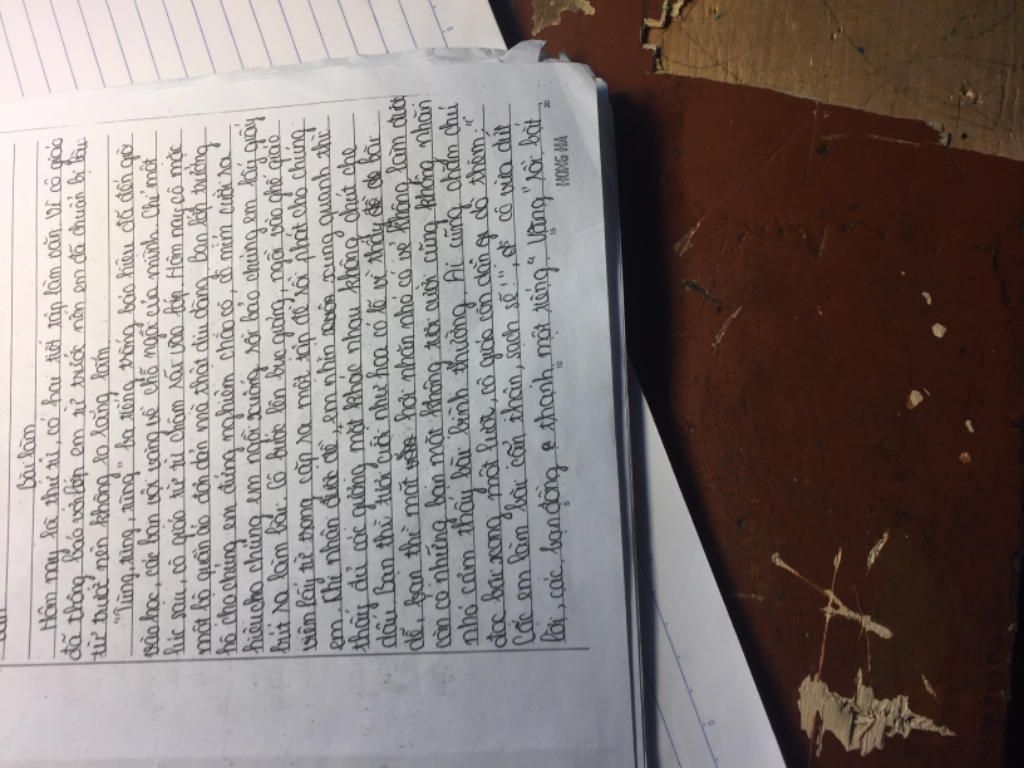 Bài làm
Hôm nay lại thi tí, có hai tiết tập làm văn vì cô giáo
đã thông báo với lớp em từ trước nên em đã chuẩn bị bài
từ trước nên không lo lắng lắm.
"Tùng, tùng, tùng" ba tiếng trống báo hiệu đã đến giờ
vào học, các bạn vội vàng về chỗ ngồi của mình. Chỉ một
lúc sau, cô giáo từ từ chậm rãi vào lớp. Hôm nay cô mặc
một bộ quần áo đơn dản mà thật dịu dàng. Bạn lớp trưởng
hô cho chúng em đứng nghiêm chào cô, cô mỉm cười ra
hiệu cho chúng em ngồi xuống rồi bảo chúng em lấy giấy
bút ra làm bài. Cô bước lên bục giảng, ngồi vào ghế giáo
viên lấy từ trong cặp ra một tập đề rồi phát cho chúng
em. Khi nhận được đề, em nhìn xung quanh thì
thấy đủ các giọng mặt khác nhau không chút che
dấu. Bạn thì tươi cười như hoa có lẽ vì thấy đề dễ bài
dễ, bạn thì mặt hơi nhăn nhó có vẻ không làm được
còn có những bạn mặt không tươi cười cũng không nhăn
nhó cảm thấy bài bình thường. Ai cũng chăm chú
đọc bài xong một lượt, cô giáo căn dặn cả đồ thêm: "
Các em làm bài cẩn thận, sạch sẽ!" cô vừa dứt
lời, các bạn đồng thanh một tiếng "Vâng" rồi bắt
5
10
15
20
HOÀNG HÀ